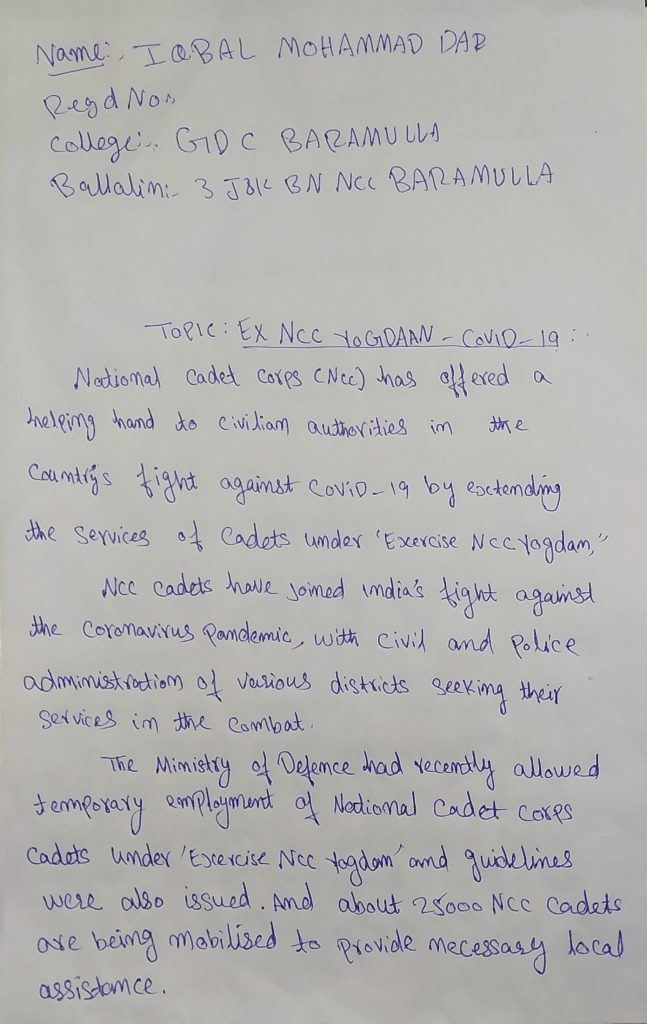 Name:- IQBAL MOHAMMAD DAR
Regd No:-
College:- GDC BARAMULLA
Battalin:- 3 J&K BN NCC BARAMULLA
TOPIC: EX NCC YOGDAAN - COVID-19:
National Cadet Corps (NCC) has offered a
helping hand to civilian authorities in the
Country's fight against COVID-19 by extending
the services of Cadets under 'Exercise NCC Yogdan,"
NCC cadets have joined india's fight against
the Coronavirus Pandemic, with civil and Police
administration of various districts seeking their
services in the combat.
The Ministry of Defence had recently allowed
temporary employment of National Cadet Corps
Cadets under 'Excercise NCC Yogdan' and guidelines
were also issued. And about 25000 NCC Cadets
are being mobilised to provide necessary local
assistance.